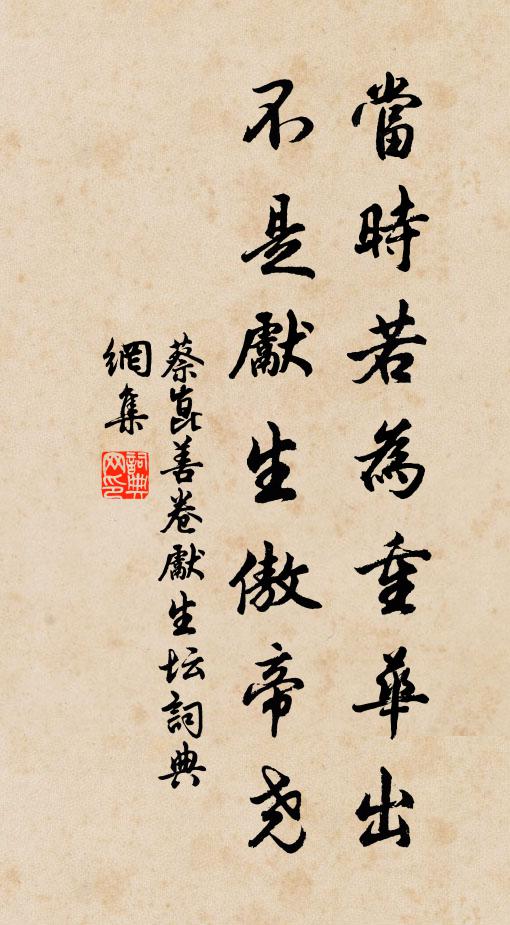 當時若為重華出
不是獻生傲帝尧
蔡崑善卷獻生坛詞典
網集
詞典
网印